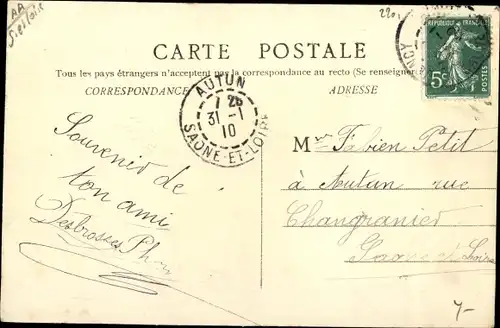 2201
AA
CARTE POSTALE
Tous les pays étrangers n'acceptent pas la correspondance au recto (Se renseigner
CORRESPONDANCE
ADRESSE
RÉPUBLIQUE FRANÇAISE
5c
POSTES
AUTUN
31 -1
10
SAONE-ET-LOIRE
Souvenir de
ton ami
Desbrosses Ph
Mr Fabien Petit
à Autun rue
Changranier
Saone et Loire
7-